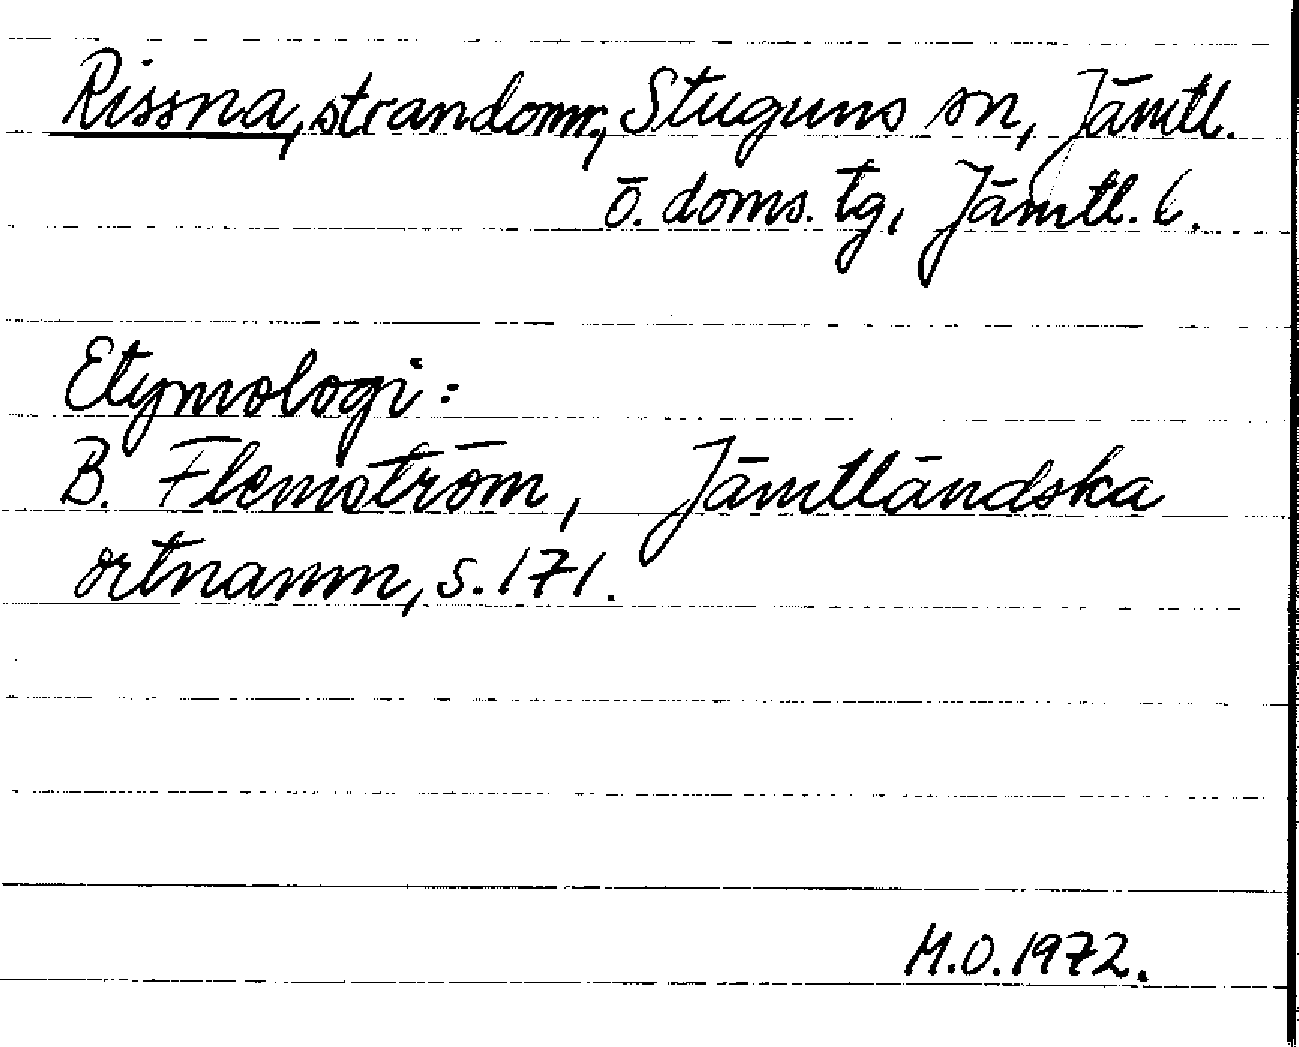 Rissna, strandomr, Stuguns sn, Jämtl.
ö. doms. tg, Jämtl. l.
Etymologi:
B. Flemström, Jämtländska
ortnamn, s. 171.
M.O. 1972.